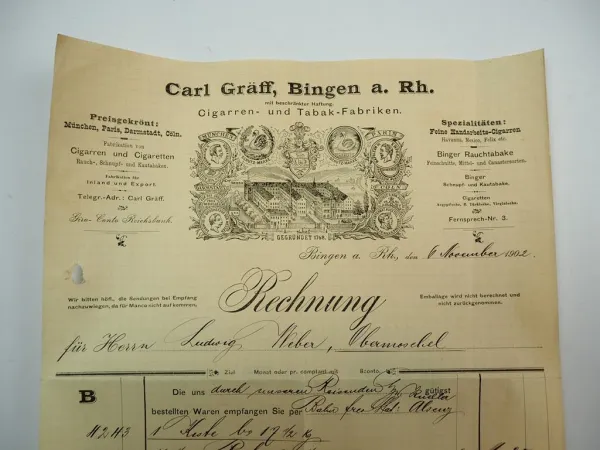 Carl Gräff, Bingen a. Rh.
mit beschränkter Haftung.
Cigarren- und Tabak-Fabriken.
Preisgekrönt:
München, Paris, Darmstadt, Cöln.
Fabrikation von
Cigarren und Cigaretten
Rauch-, Schnupf- und Kautabaken.
Fabrikation für
Inland und Export.
Telegr.-Adr.: Carl Gräff.
Giro-Conto Reichsbank.
MÜNCHEN
PARIS
GEGRÜNDET
Spezialitäten:
Feine Handarbeits-Cigarren
Havanna, Bouno, Felix etc.
Binger Rauchtabake
Feinschnitte, Mittel- und Canastersorten.
Binger
Schnupf- und Kautabake.
Cigaretten
Fernsprech-Nr. 3.
Bingen a. Rh., den 6 November 1902.
Wir bitten höfl., die Sendungen bei Empfang
nachzuwiegen, da für Manco nicht aufkommen.
Rechnung
Emballage wird nicht berechnet und
nicht zurückgenommen.
für Herrn Ludwig Weber, Obermoschel
Ziel Monat oder pr. comptant mit Sconto.
B
Die uns durch unseren Reisenden gütigst
bestellten Waren empfangen Sie per Bahn frei Stat. Alsenz
4243 1 Kiste bto 17 1/2 Kg